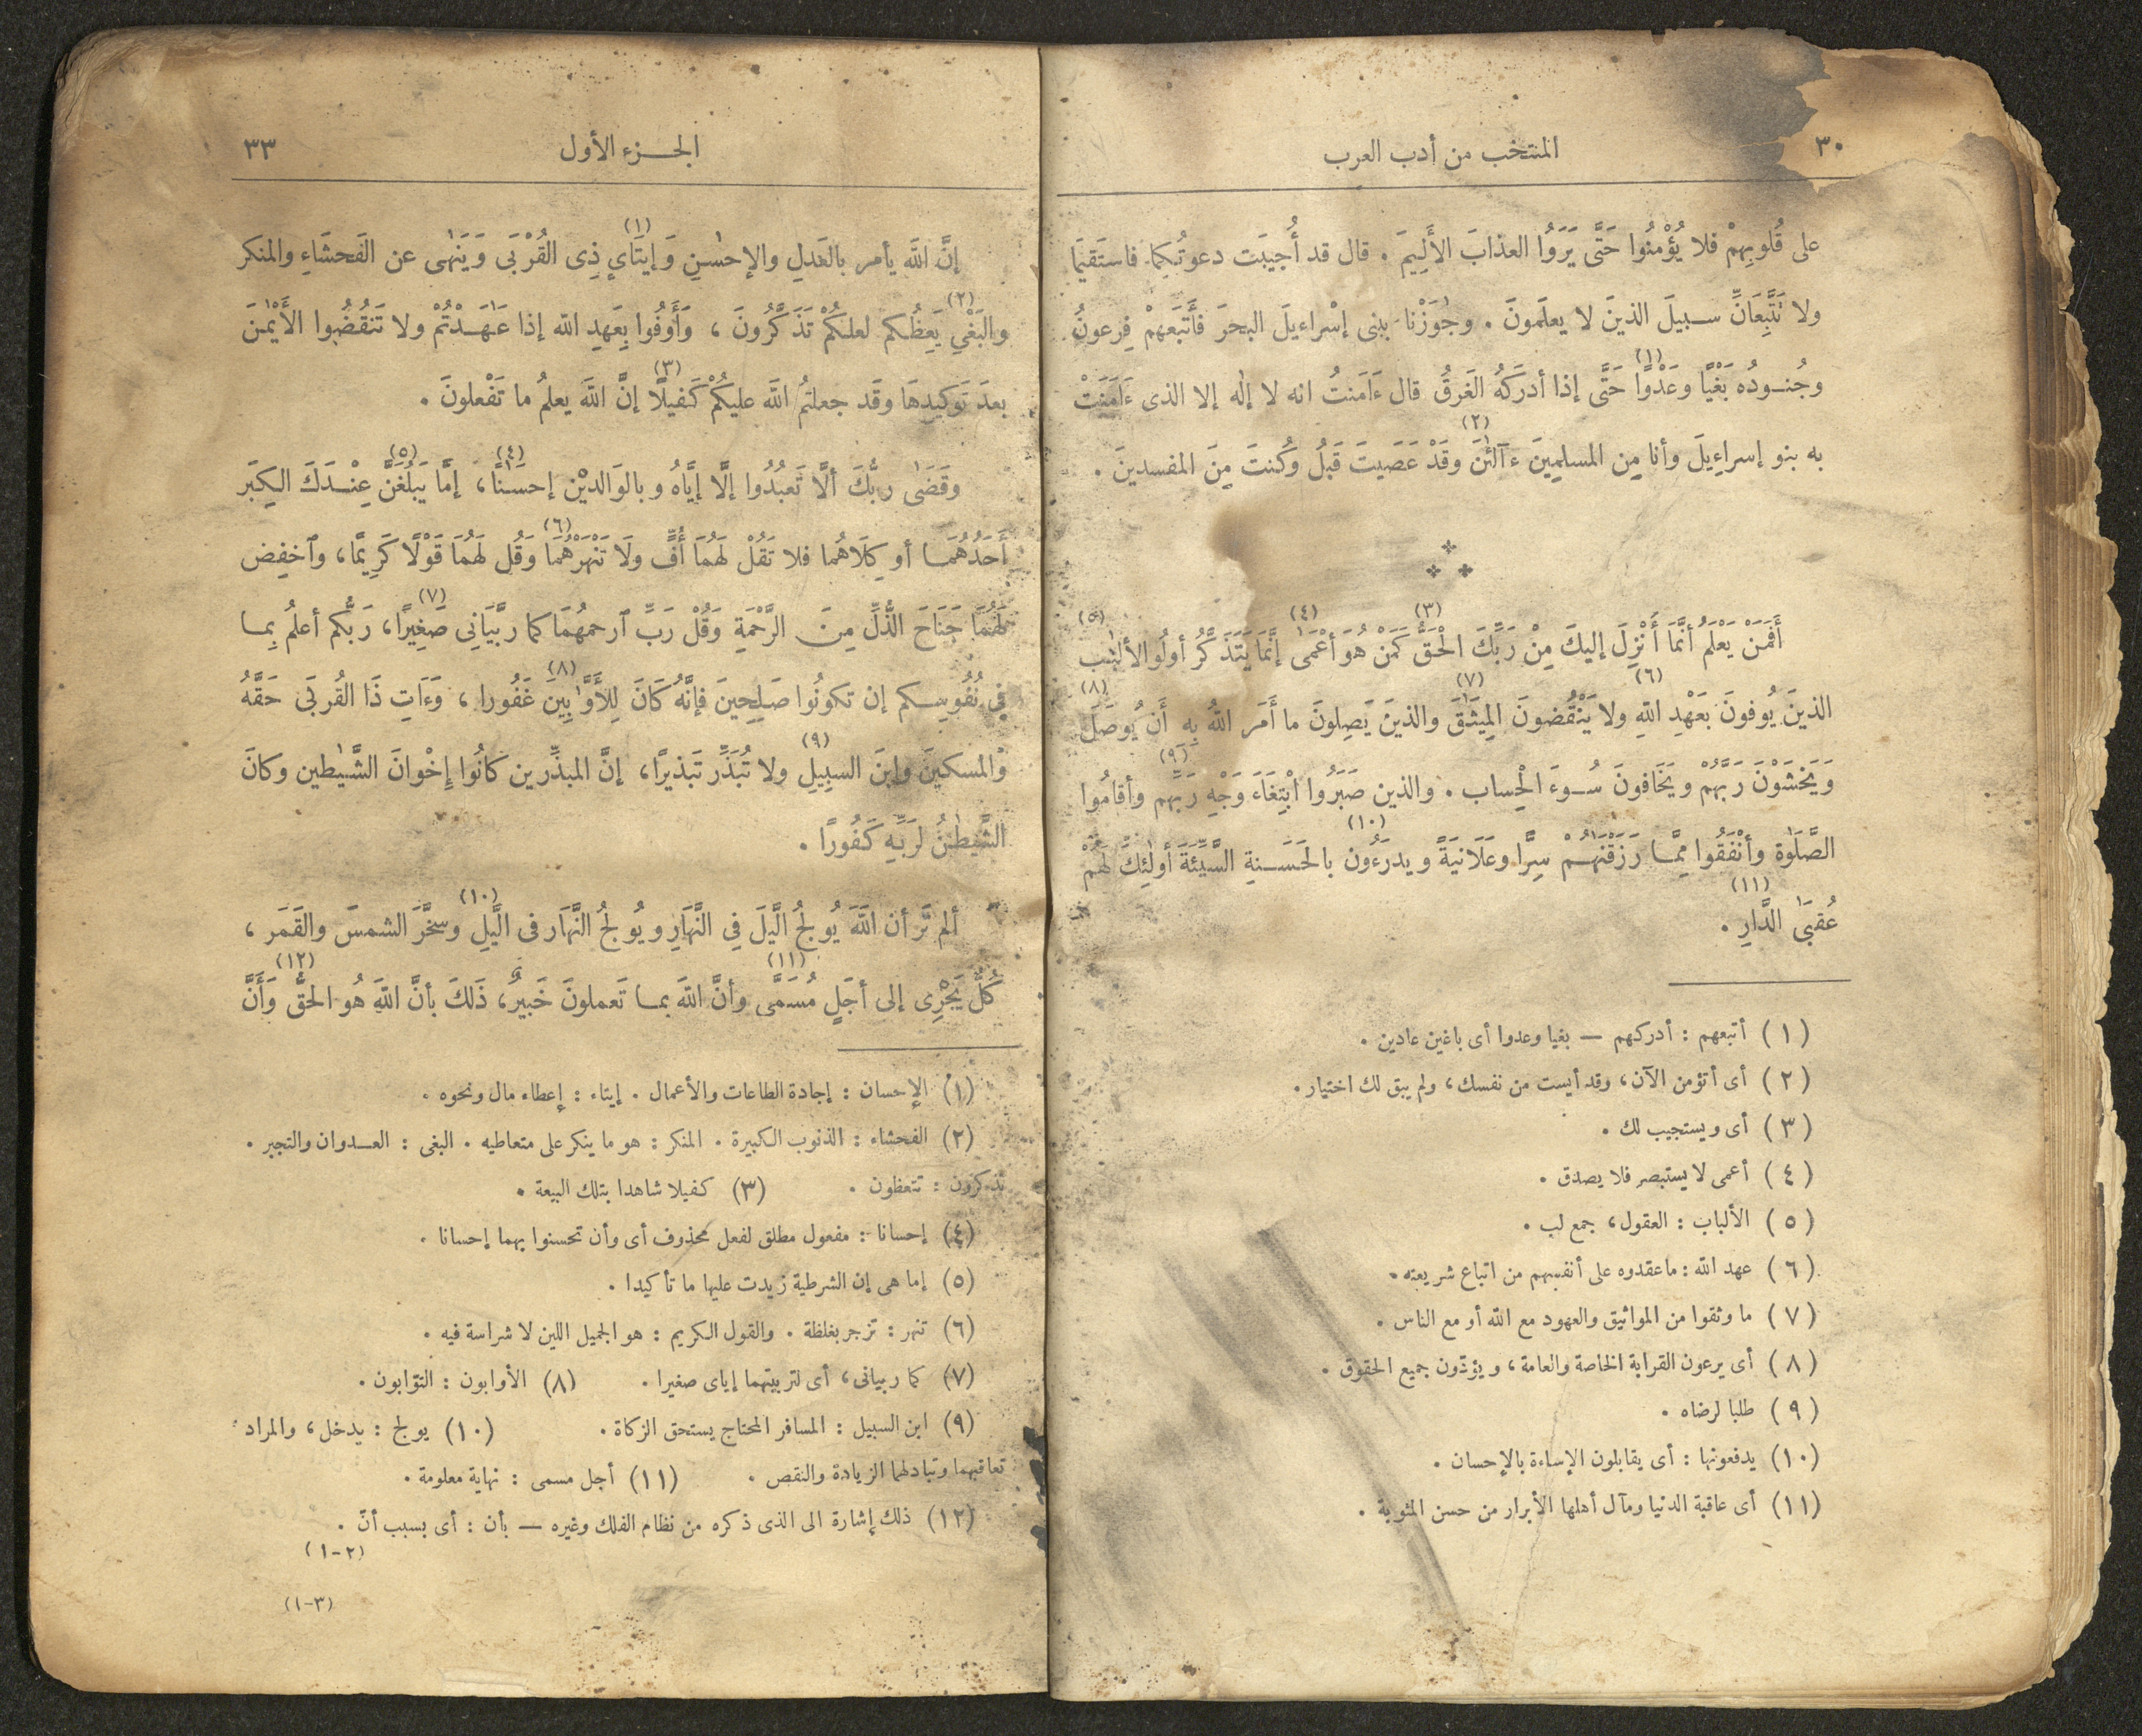 ٣٠
المنتخب من أدب العرب
على قُلوبِهِمْ فلا يُؤْمنُوا حَتَّى يَرَوُا العذابَ الأَلِيمَ . قال قد أُجيبَت دعوتُكما فاستَقيمَا
ولا تَتَّبِعَانِّ سبيلَ الذينَ لا يعلَمونَ . وجٰوَزْنا ببنى إسْراءيلَ البحرَ فأَتبَعهمْ فِرعونُ
وجُنودُه بَغْيًا وعَدْوًا (١) حَتَّى إذا أدرَكَهُ الغَرقُ قال ءَامَنتُ انه لا إلٰه إلا الذى ءَامَنَتْ
به بنو إسراءِيلَ وأنا مِن المسلمِينَ ءآلْـٰٔنَ (٢) وقَدْ عَصَيتَ قَبلُ وكُنتَ مِنَ المفسدينَ .
أَفَمَنْ يَعْلَمُ أنَّمَا أُنْزِلَ إليكَ مِنْ رَبِّكَ الْحَقُّ (٣) كَمَنْ هُوَ أعْمَى (٤) إنَّمَا يَتَذَكَّرُ أولُوا الألبٰب (٥)
الذينَ يُوفونَ بَعَهْدِ اللهِ (٦) ولا يَنْقُضونَ المِيثَٰقَ (٧) والذينَ يَصِلونَ ما أَمَر اللهُ بِه أَن يُوصَلَ (٨)
وَيَخشَوْنَ رَبَّهُمْ ويَخَافونَ سُوءَ الْحِساب . والذين صَبَرُوا ابْتِغَاءَ وَجْهِ رَبِّهِم (٩) وأقامُوا
الصَّلَوٰة وأنْفَقُوا مِمَّا رَزَقْنَٰهُمْ سِرًّا وعَلَانيَةً ويدرَءُون (١٠) بالحَسَنةِ السَّيِّئَةَ أولٰئِكَ لَهُمْ
عُقبَى الدَّارِ (١١) .
(١) أتبعهم : أدركهم — بغيا وعدوا أى باغين عادين .
(٢) أى أتؤمن الآن، وقد أيست من نفسك، ولم يبق لك اختيار .
(٣) أى ويستجيب لك .
(٤) أعمى لا يستبصر فلا يصدق .
(٥) الألباب : العقول، جمع لب .
(٦) عهد الله : ما عقدوه على أنفسهم من اتباع شريعته .
(٧) ما وثقوا من المواثيق والعهود مع الله أو مع الناس .
(٨) أى يرعون القرابة الخاصة والعامة، ويؤدّون جميع الحقوق .
(٩) طلبا لرضاه .
(١٠) يدفعونها : أى يقابلون الإساءة بالإحسان .
(١١) أى عاقبة الدنيا ومآل أهلها الأبرار من حسن المثوبة .
الجزء الأول
٣٣
إنَّ اللهَ يأمر بالعَدلِ والإحسٰنِ (١) وَإيتَايءِ ذِى القُرْبَى وَيَنهٰى عن الفَحشَاءِ والمنكر
والبَغْيِ (٢) يَعِظُكم لعلكُمْ تَذَكَّرُونَ ، وَأَوفُوا بِعَهدِ الله إذا عَٰهَدْتُمْ ولا تَنقُضُوا الأَيْمٰنَ
بعدَ تَوكِيدِهَا وقَد جعلتمُ اللهَ عليكُمْ كَفيلًا (٣) إنَّ اللهَ يعلمُ ما تَفْعلونَ .
وقَضَى ربُّكَ ألَّا تَعبُدُوا إلَّا إيَّاهُ وبالوَالديْن إحسَٰنًا (٤) ، إمَّا يَبلُغَنَّ (٥) عِنْدَكَ الكِبَر
أَحَدُهُمَا أو كِلَاهُما فلا تَقُلْ لَهُمَا أُفٍّ ولَا تَنْهَرْهُمَا (٦) وَقُل لهُمَا قَوْلًا كَرِيمًا ، وٱخفِض
لَهُمَا جَنَاحَ الذُّلِّ مِنَ الرَّحْمَةِ وَقُلْ رَبِّ ٱرحمهُمَا كما ربَّيَانِى صَغِيرًا (٧) ، رَبُّكم أعلمُ بما
فِى نُفُوسِكم إن تكونُوا صَٰلِحِينَ فإنَّهُ كَانَ لِلأَوَّٰبِينَ (٨) غَفُورا ، وَءَاتِ ذَا القُربَى حَقَّهُ
والمسكينَ وابنَ السبِيلِ (٩) ولا تُبَذِّر تَبذيرًا ، إنَّ المبذِّرين كانُوا إِخْوانَ الشَّيٰطين وكانَ
الشَّيطٰنُ لرَبِّهِ كَفُورًا .
ألم تَر أن اللهَ يُولجُ الَّيلَ فِى النَّهَارِ ويُولجُ النَّهَار فى الَّيلِ (١٠) وسخَّرَ الشمسَ والقَمَر ،
كُلٌّ يَجْرِى إلى أجَلٍ مُسَمَّى (١١) وأنَّ اللهَ بما تَعملونَ خَبيرٌ ، ذَلكَ بأنَّ اللهَ هُو الحقُّ (١٢) وَأَنَّ
(١) الإحسان : إجادة الطاعات والأعمال . إيتاء : إعطاء مال ونحوه .
(٢) الفحشاء : الذنوب الكبيرة . المنكر : هو ما ينكر على متعاطيه . البغى : العدوان والتجبر .
تذكرون : تتعظون . (٣) كفيلا شاهدا بتلك البيعة .
(٤) إحسانا : مفعول مطلق لفعل محذوف أى وأن تحسنوا بهما إحسانا .
(٥) إما هى إن الشرطية زيدت عليها ما تأكيدا .
(٦) تنهر : تزجر بغلظة . والقول الكريم : هو الجميل اللين لا شراسة فيه .
(٧) كما ربيانى، أى لتربيتهما إياى صغيرا . (٨) الأوابون : التوّابون .
(٩) ابن السبيل : المسافر المحتاج يستحق الزكاة . (١٠) يولج : يدخل، والمراد
تعاقبهما وتبادلهما الزيادة والنقص . (١١) أجل مسمى : نهاية معلومة .
(١٢) ذلك إشارة الى الذى ذكره من نظام الفلك وغيره — بأن : أى بسبب أنّ .
(٢-١)
(٣-١)